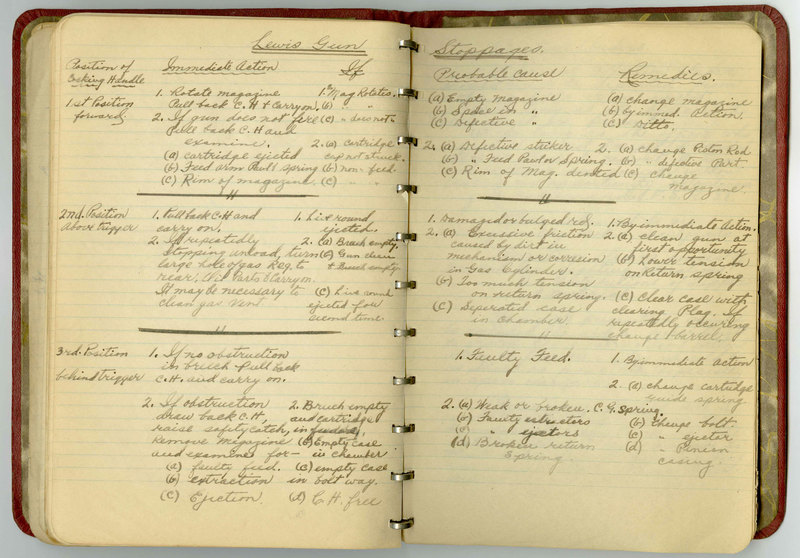 Lewis Gun
Position of
Cocking Handle
Immediate Action
If
1st Position
forward
1. Rotate magazine
Pull back C.H & carry on.
2. If gun does not fire
Pull back C.H and
examine.
(a) cartridge ejected
(b) Feed arm Pawl & Spring
(c) Rim of magazine
1. (a) Mag Rotates.
(b) " "
(c) " does not
2. (a) cartridge
cap not struck.
(b) non-feed.
(c) " "
2nd. Position
Above trigger
1. Pull back C.H and
carry on.
2. If repeatedly
stopping unload, turn
large hole of gas Reg. to
rear, Oil Parts & carry on.
It may be necessary to
clean gas vent
1. Live round
ejected.
2. (a) Breech empty.
(b) Gun clean
& Breech empty
(c) Live round
ejected for
second time.
3rd. Position
behind trigger
1. If no obstruction
in breech Pull back
C.H. and carry on.
2. If obstruction
draw back C.H,
raise safety catch,
Remove Magazine
and examine for—
(a) faulty feed.
(b) extraction
(c) Ejection.
2. Breech empty
and cartridge
in
(b) Empty case
in chamber
(c) empty case
in bolt way.
(d) C.H. free
Stoppages.
Probable Cause
Remedies.
(a) Empty Magazine
(b) Space in "
(c) Defective "
2. (a) Defective striker
(b) " Feed Pawl or Spring.
(c) Rim of Mag. dented
(a) change magazine
(b) by immed. Action.
(c) Ditto.
2. (a) change Piston Rod
(b) " defective Part
(c) change
magazine.
1. Damaged or bulged rd.
2. (a) Excessive friction
caused by dirt in
mechanism or corrosion
in Gas Cylinder.
(b) Too much tension
on return spring.
(c) Seperated case
in chamber.
1. By immediate Action.
2. (a) clean gun at
first opportunity
(b) Lower tension
on Return spring
(c) Clear case with
clearing Plug. If
repeatedly occuring
change barrel.
1. Faulty Feed.
2. (a) Weak or broken, C.G. Spring.
(b) Faulty extractors
(c) " ejectors
(d) Broken return
Spring
1. By immediate Action
2. (a) change cartridge
guide spring
(b) Change bolt.
(c) " ejector
(d) " Pinion
casing.